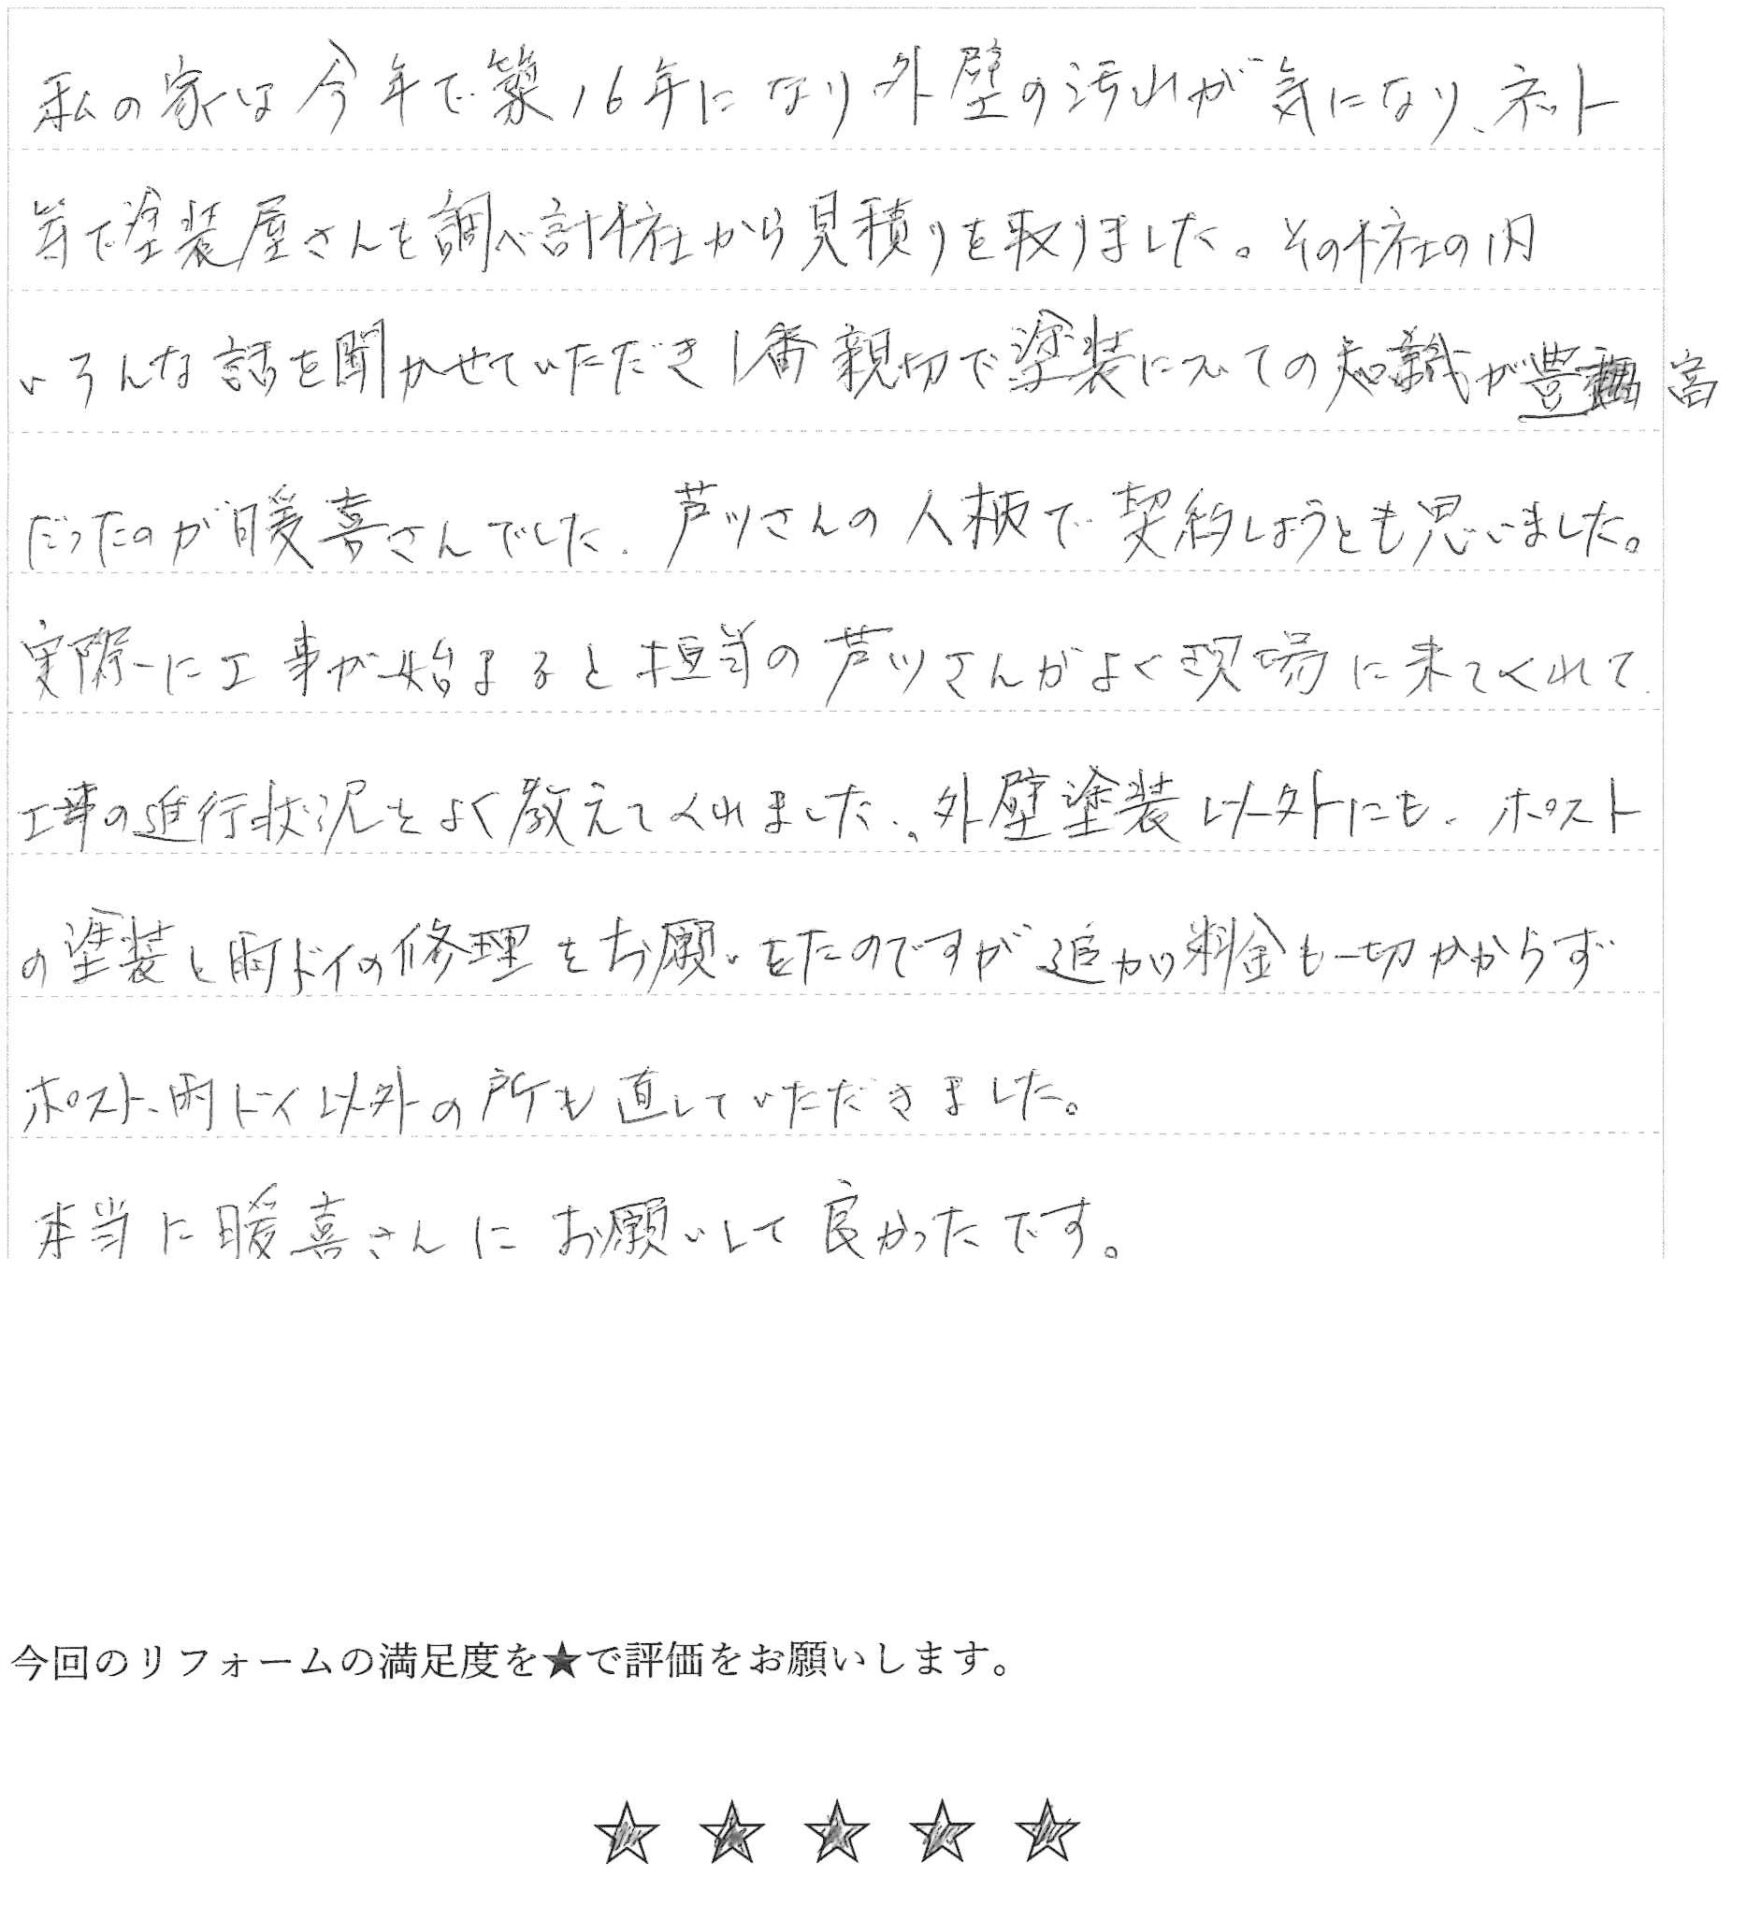 私の家は今年で築16年になり外壁の汚れが気になり、ネット
等で塗装屋さんを調べ計4社から見積りを取りました。その4社の内
いろんな話を聞かせていただき1番親切で塗装についての知識が豊富
だったのが暖喜さんでした。芦ツさんの人柄で契約しようとも思いました。
実際に工事が始まると担当の芦ツさんがよく現場に来てくれて
工事の進行状況をよく教えてくれました。外壁塗装以外にも、ポスト
の塗装と雨ドイの修理をお願いをたのですが追加料金も一切かからず
ポスト、雨ドイ以外の所も直していただきました。
本当に暖喜さんにお願いして良かったです。
今回のリフォームの満足度を★で評価をお願いします。
★★★★★